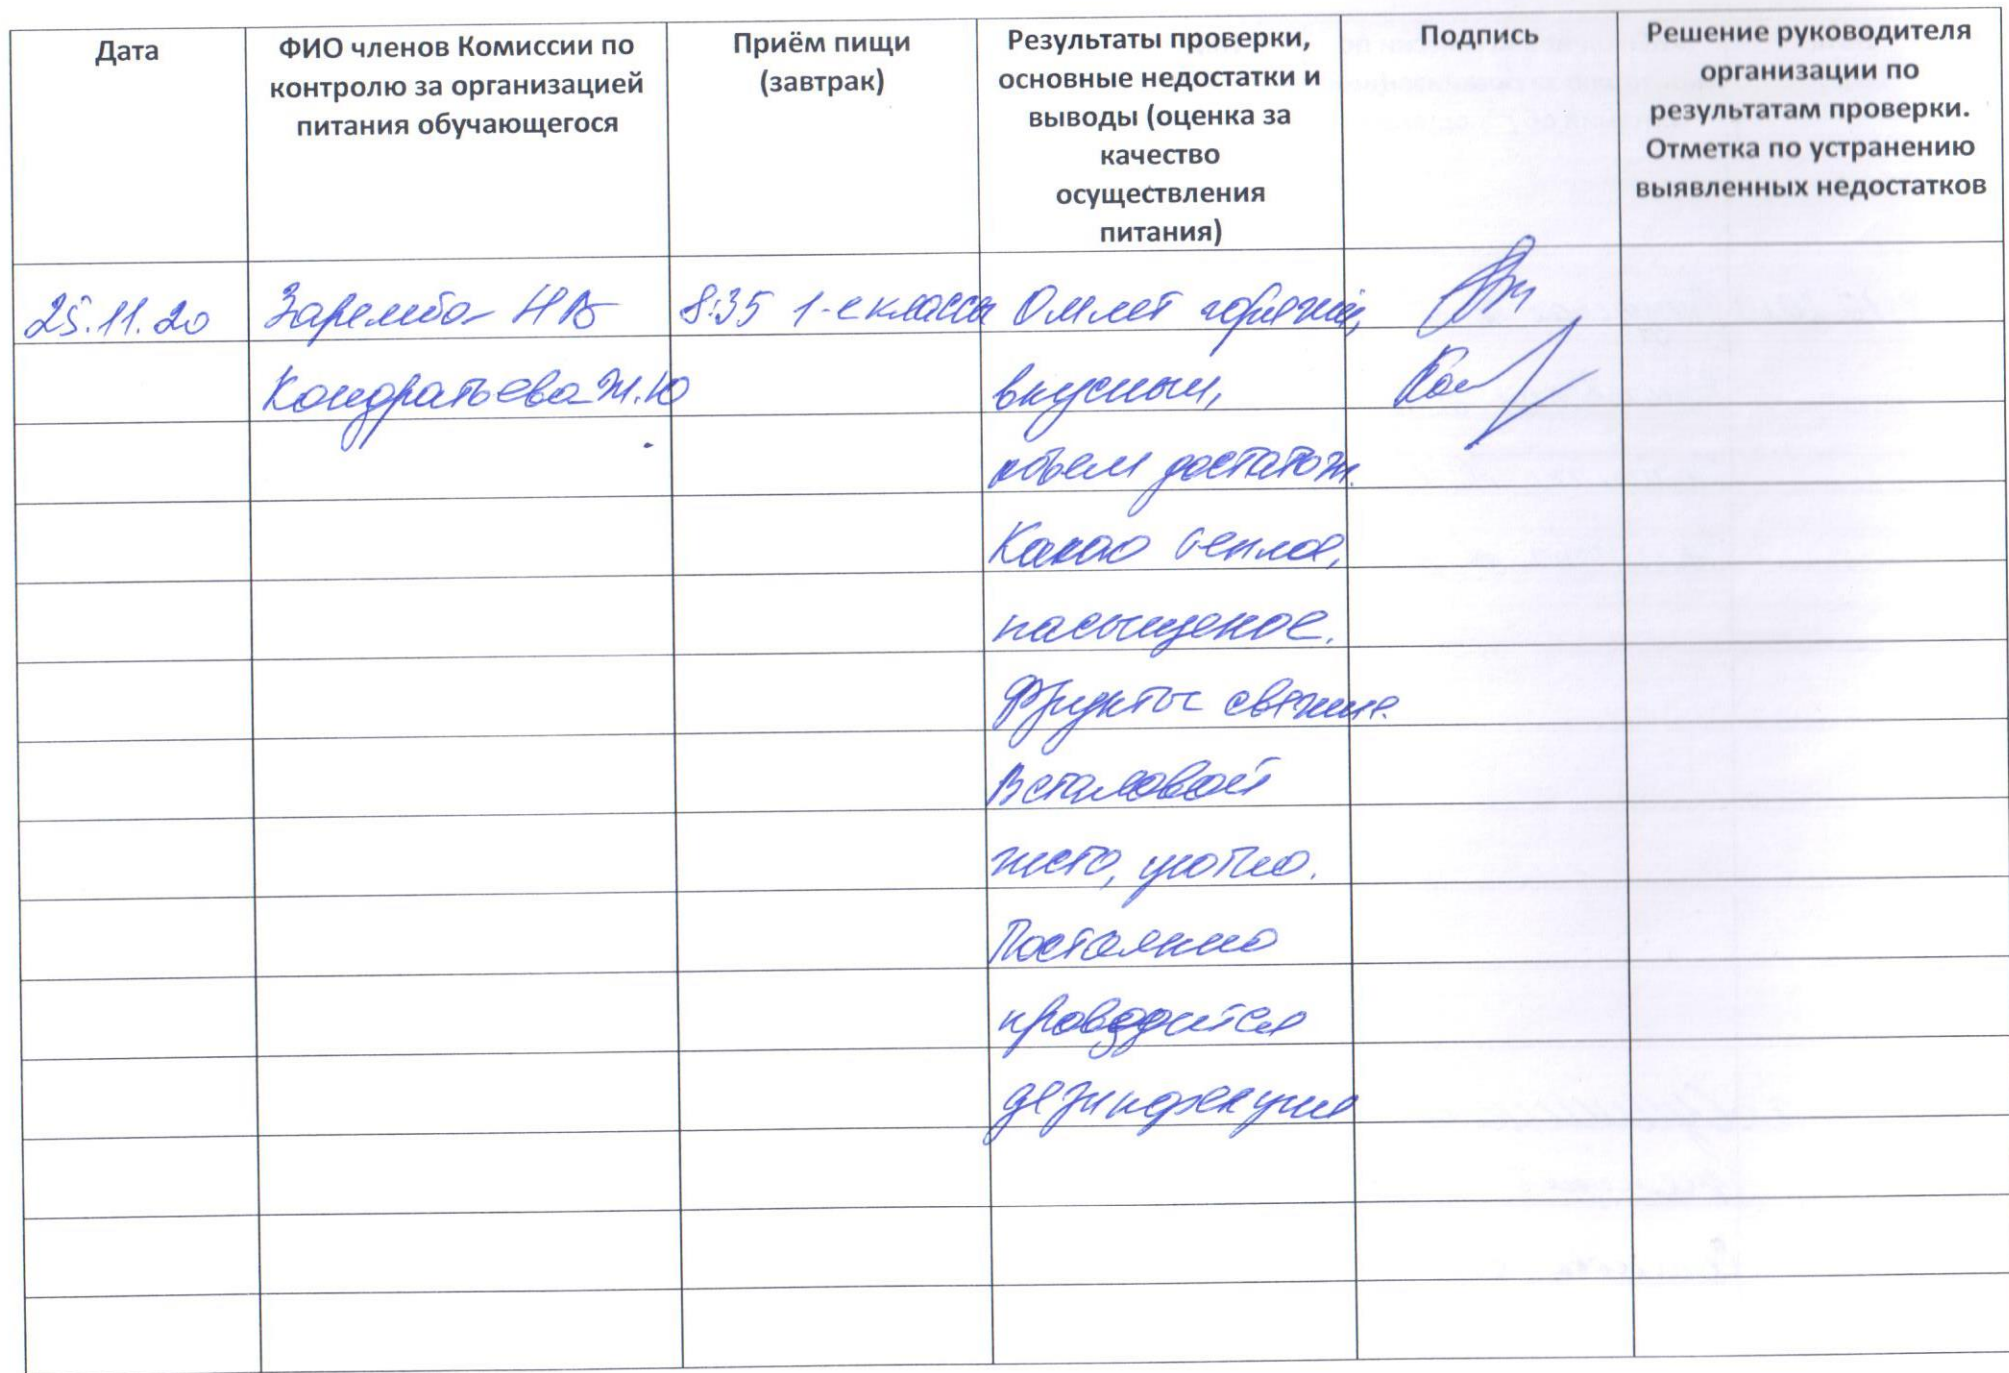 Дата
ФИО членов Комиссии по
контролю за организацией
питания обучающегося
Приём пищи
(завтрак)
Результаты проверки,
основные недостатки и
выводы (оценка за
качество
осуществления
питания)
Подпись
Решение руководителя
организации по
результатам проверки.
Отметка по устранению
выявленных недостатков
25.11.20
Заремба НВ
8:35 1-е классы
Омлет горячий,
Кондратьева Ж.Ю.
вкусный,
объем достаточ.
Какао теплое,
насыщеное.
Фрукты свежие.
В столовой
чисто, уютно.
Постоянно
проводится
дезинфекция